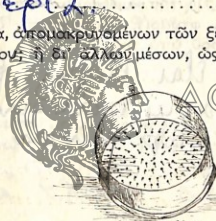 α, ἀπομακρυνομένων τῶν ξε
ου; ἢ δι’ ἄλλων μέσων, ὡς